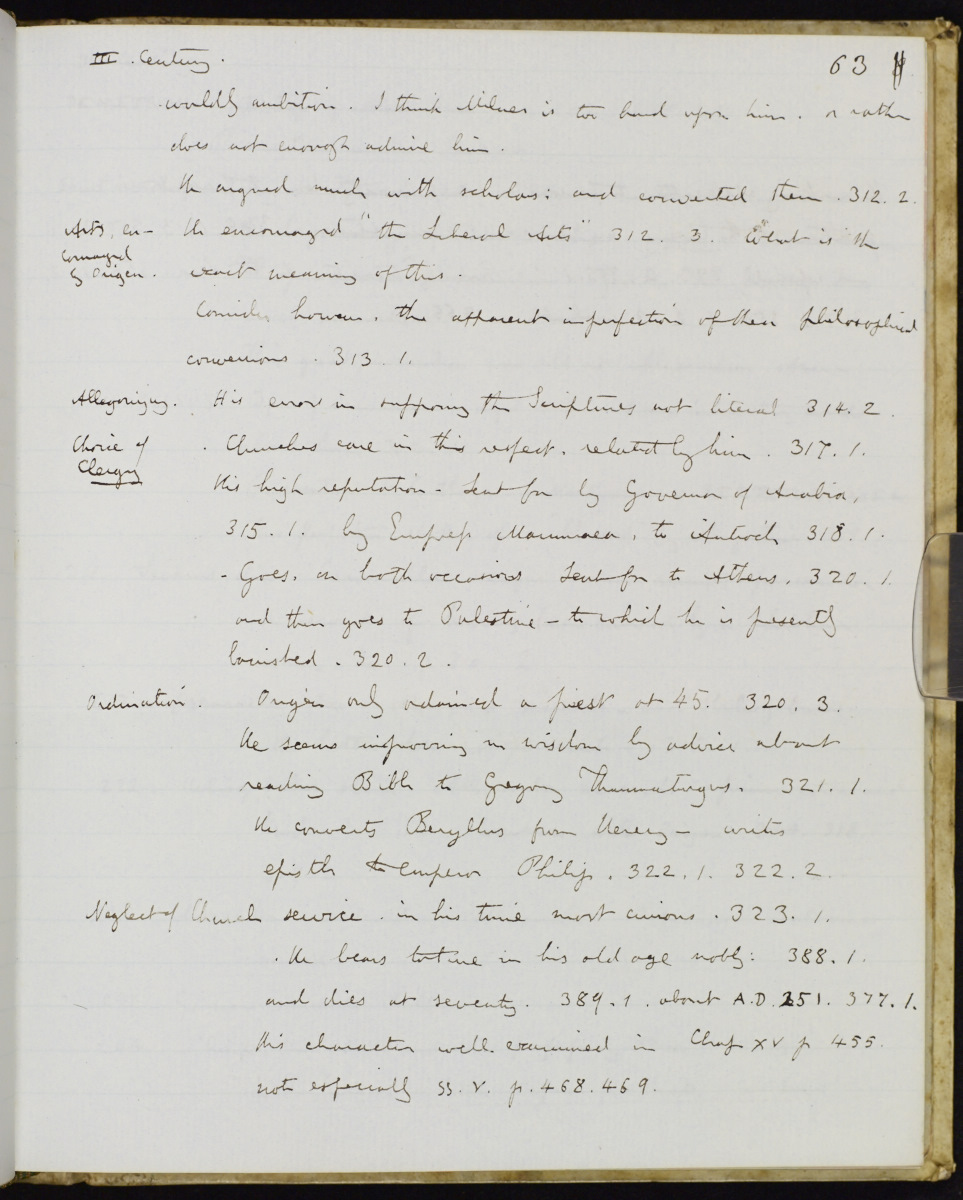 III. Century. 63
worldly ambition. I think Milner is too hard upon him. or rather
does not enough admire him.
He argued much with scholars: and converted them. 312. 2.
Arts, en-
couraged
by Origen.
He encouraged "the Liberal Arts" 312. 3. What is the
exact meaning of this.
Consider however. the apparent imperfection of these philosophical
conversions. 313. 1.
Allegorizing. His error in supposing the Scriptures not literal 314. 2.
Choice of
Clergy
. Churches care in this respect. related by him. 317. 1.
His high reputation - Sent for by Governor of Arabia,
315. 1. by Empress Mammaea, to Antioch 318. 1.
- Goes, on both occasions Sent for to Athens. 320. 1.
and then goes to Palestine - to which he is presently
banished. 320. 2.
Ordination. Origen only ordained a priest at 45. 320. 3.
He seems improving in wisdom by advice about
reading Bible to Gregory Thaumaturgus. 321. 1.
He converts Beryllus from Heresy - writes
epistle to Emperor Philip. 322. 1. 322. 2.
Neglect of Church service. in his time most curious. 323. 1.
. He bears torture in his old age nobly: 388. 1.
and dies at seventy. 389. 1. about A.D. 251. 377. 1.
His character well examined in Chap XV p 455.
note especially ss. V. p. 468. 469.